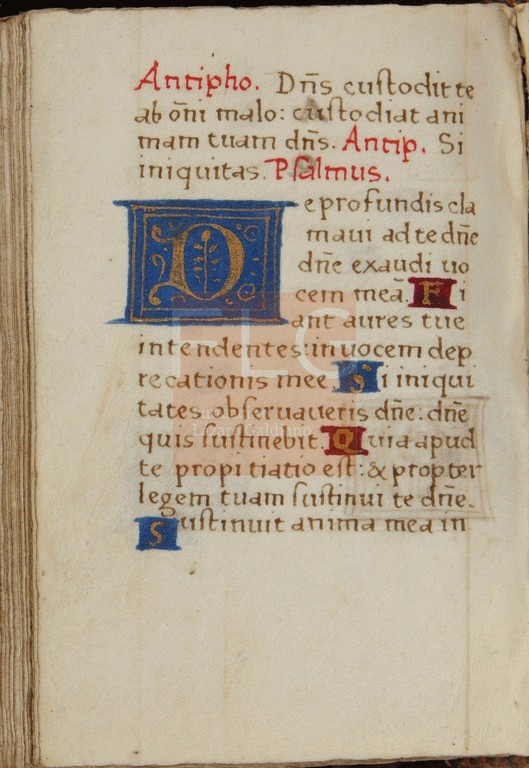 Antipho. Dn̄s custodit te
ab on̄i malo: custodiat ani
mam tuam dn̄s. Antip. Si
iniquitas. Psalmus.
De profundis cla
maui ad te dn̄e
dn̄e exaudi uo
cem meā. Fi
ant aures tue
intendentes: in uocem dep
recationis mee. Si iniqui
tates obseruaueris dn̄e: dn̄e
quis sustinebit. Quia apud
te propitiatio est: & propter
legem tuam sustinui te dn̄e.
Sustinuit anima mea in
FLG
Lázaro Galdiano